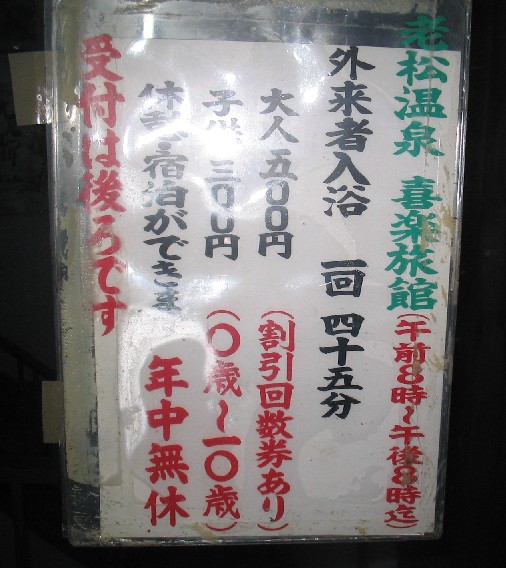 老松温泉 喜楽旅館(午前8時〜午後8時迄)
外来者入浴 一回 四十五分
大人 五〇〇円 (割引回数券あり)
子供 三〇〇円 (〇歳〜一〇歳)
休憩・宿泊ができます 年中無休
受付は後ろです